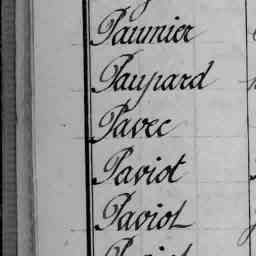 Paumier
Paupard
Pavec
Paviot
Paviot